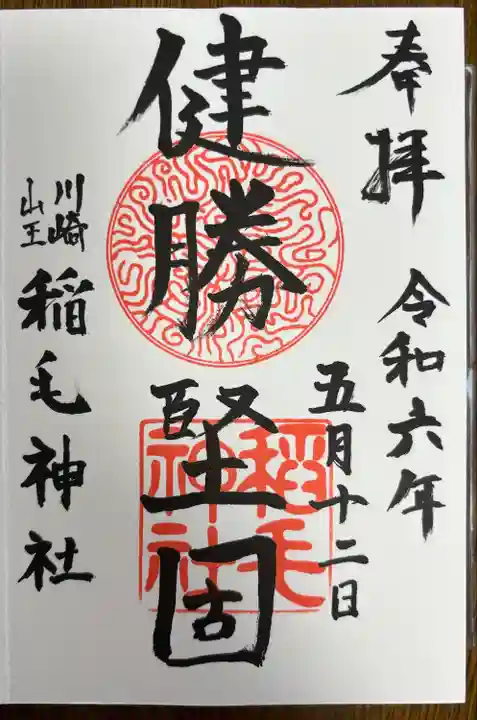 奉拝
令和六年
五月十二日
健勝堅固
稲毛神社
川崎
山王
稲毛神社